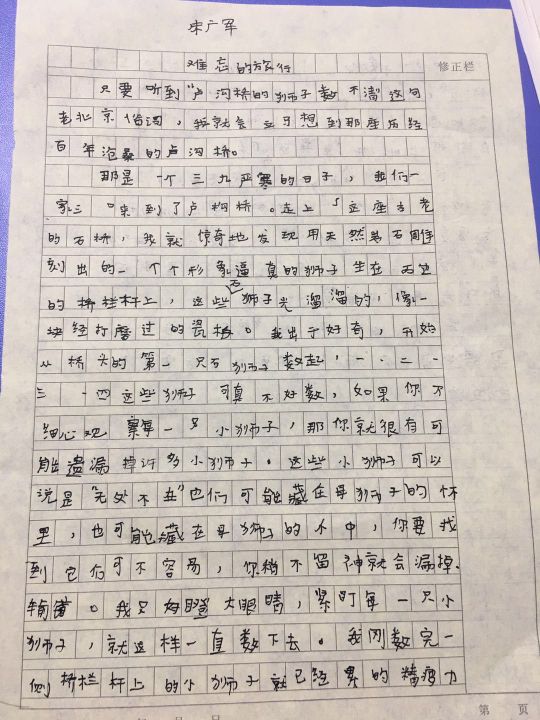 朱广军
难忘的旅行
修正栏
只要听到"卢沟桥的狮子数不清"这句
老北京俗词,我就会立刻想到那座历经
百年沧桑的卢沟桥。
那是一个三九严寒的日子,我们一
家三口来到了卢沟桥。走上了这座古老
的石桥,我就惊奇地发现用天然岩石周
刻出的一个个形象逼真的狮子坐在石
的桥栏杆上,这些石狮子光溜溜的,像一
块经打磨过的 我出于好奇,开始
从桥头的第一只石狮子数起,一、二
三、四这些狮子可真不好数,如果你不
细心观察每一只小狮子,那你就很有可
能遗漏掉许多小狮子。这些小狮子可以
说是"无处不在"也们可能藏在母狮子的怀
里,也可能藏在母狮子的 中,你要找
到它们可不容易,你稍不留神就会漏掉.
我只好瞪大眼睛,紧盯每一只小
狮子,就这样一直数下去。我刚数完一
侧桥栏杆上的小狮子就已经累的精疲力
第 页